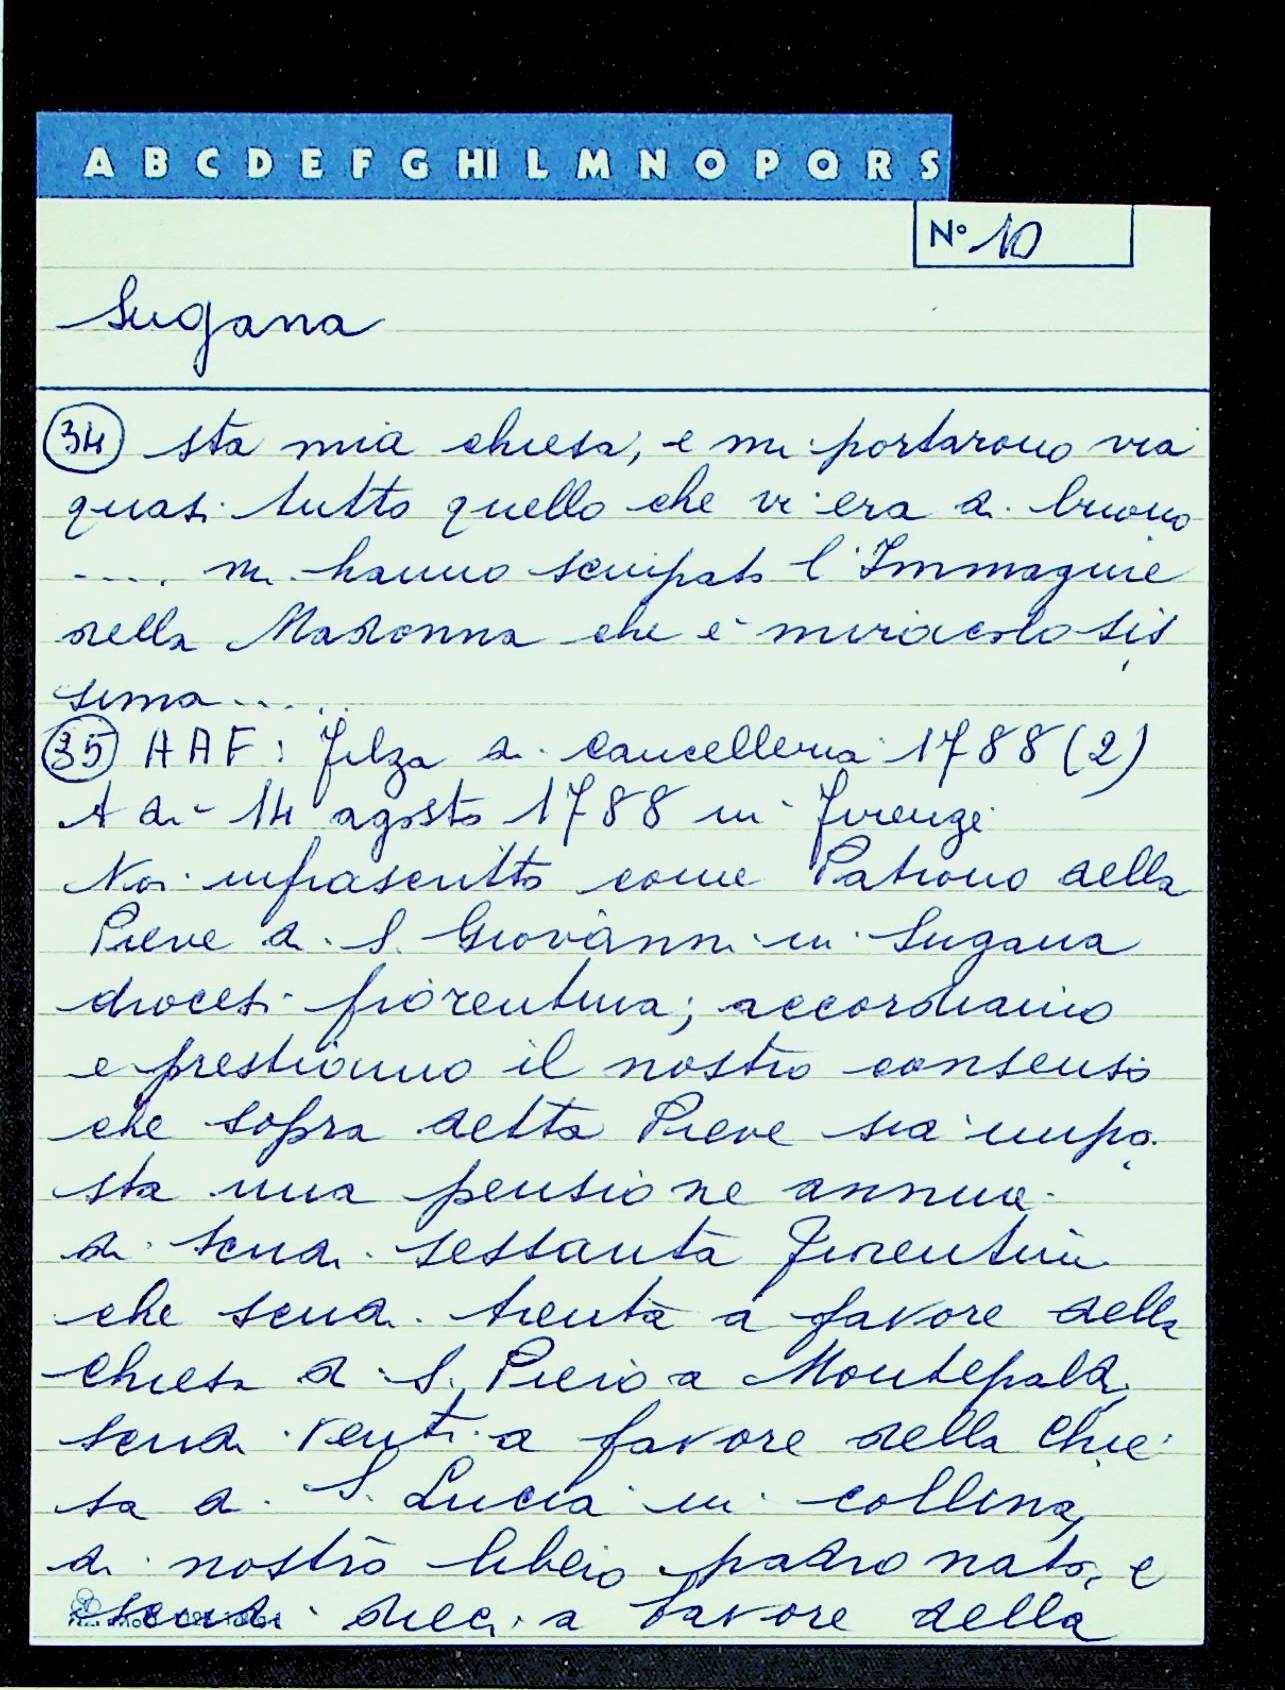 A B C D E F G HI L M N O P Q R S
N° 10
Sugana
34 sta mia chiesa, e mi portarono via
quasi tutto quello che vi era di buono
.... mi hanno sciupato l'Immagine
della Madonna che è miracolosis
sima....
35 AAF: Filza di Cancelleria 1788 (2)
A di - 14 agosto 1788 in Firenze
Noi infrascritto come Patrono della
Pieve di S. Giovanni in Sugana
diocesi fiorentina; accordiamo
e prestiamo il nostro consenso
che sopra detta Pieve sia impo
sta una pensione annua
di scudi sessanta fiorentini
che scudi trenta a favore della
Chiesa di S. Piero a Montepaldi,
scudi venti a favore della Chie
sa di S. Lucia in collina,
di nostro libero padronato, e
scudi dieci a favore della